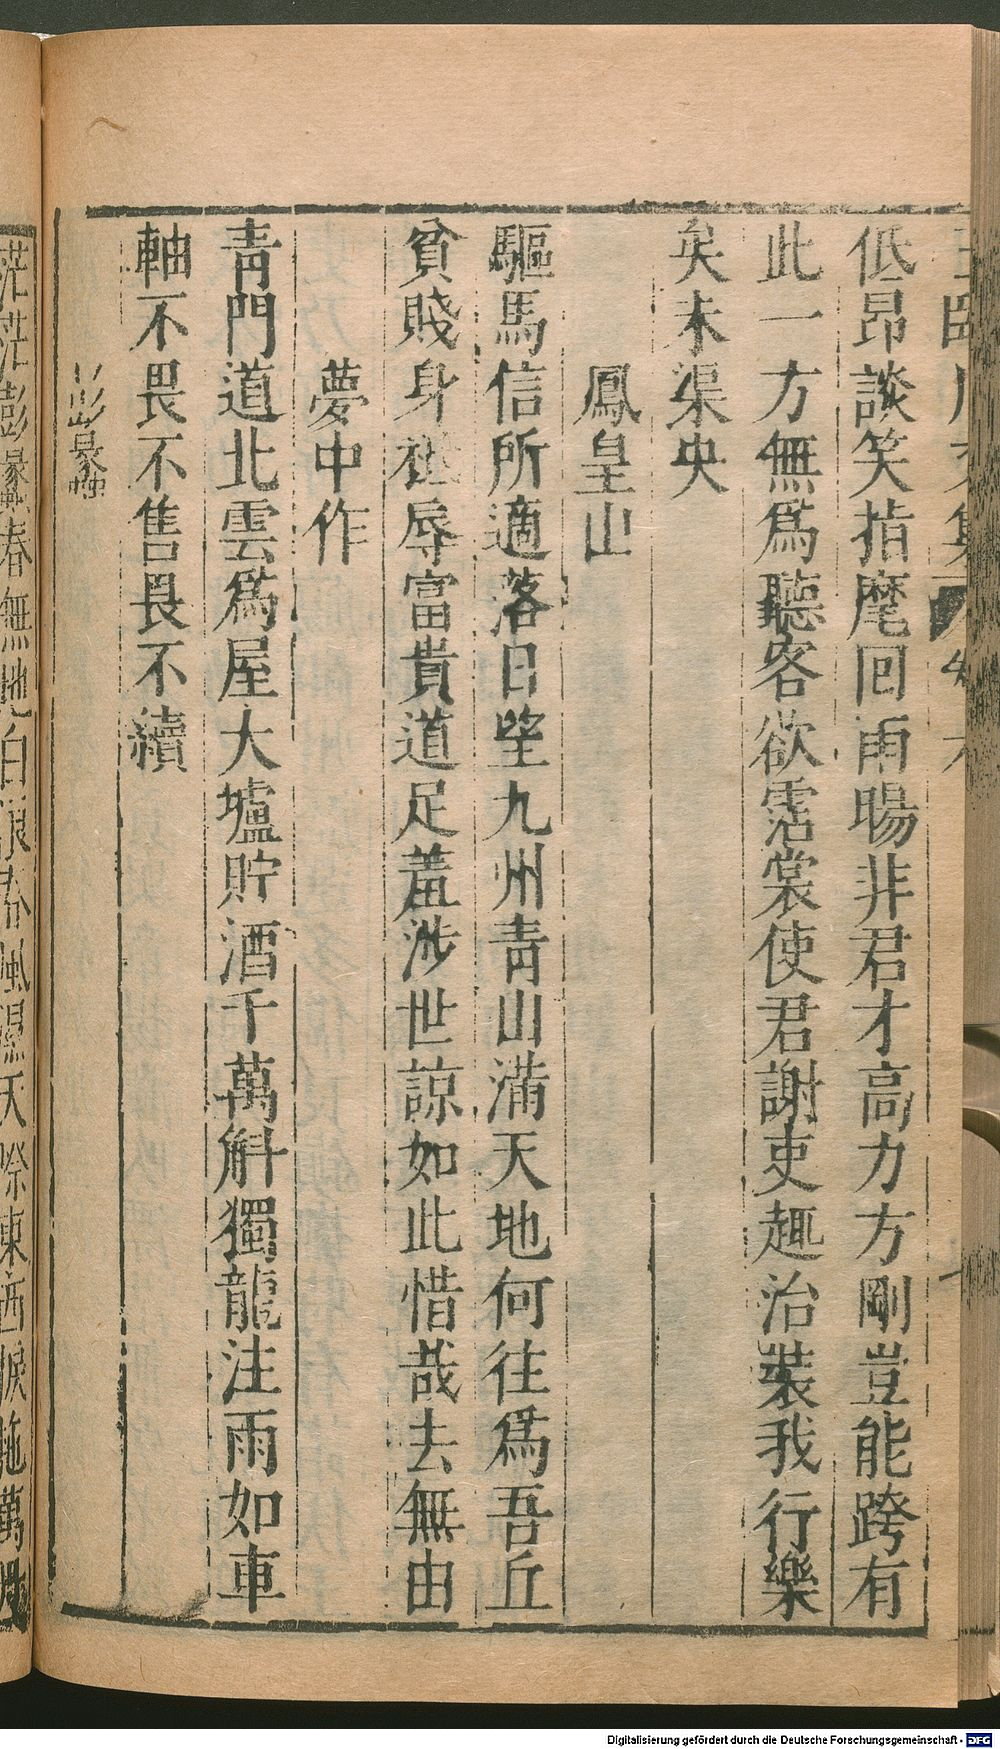 低昂談笑指麾回雨暘非君才高力方剛豈能跨有
此一方無爲聽客欲霑裳使君謝吏趣治裝我行樂
矣未渠央
鳳皇山
驅馬信所適落日望九州青山滿天地何往爲吾丘
貧賤身秪辱富貴道足羞涉世諒如此惜哉去無由
夢中作
青門道北雲爲屋大壚貯酒千萬斛獨龍注雨如車
軸不畏不售畏不續
彭蠡
茫茫彭蠡春無地白浪春風濕天際東西捩柂萬
Digitalisierung gefördert durch die Deutsche Forschungsgemeinschaft - DFG